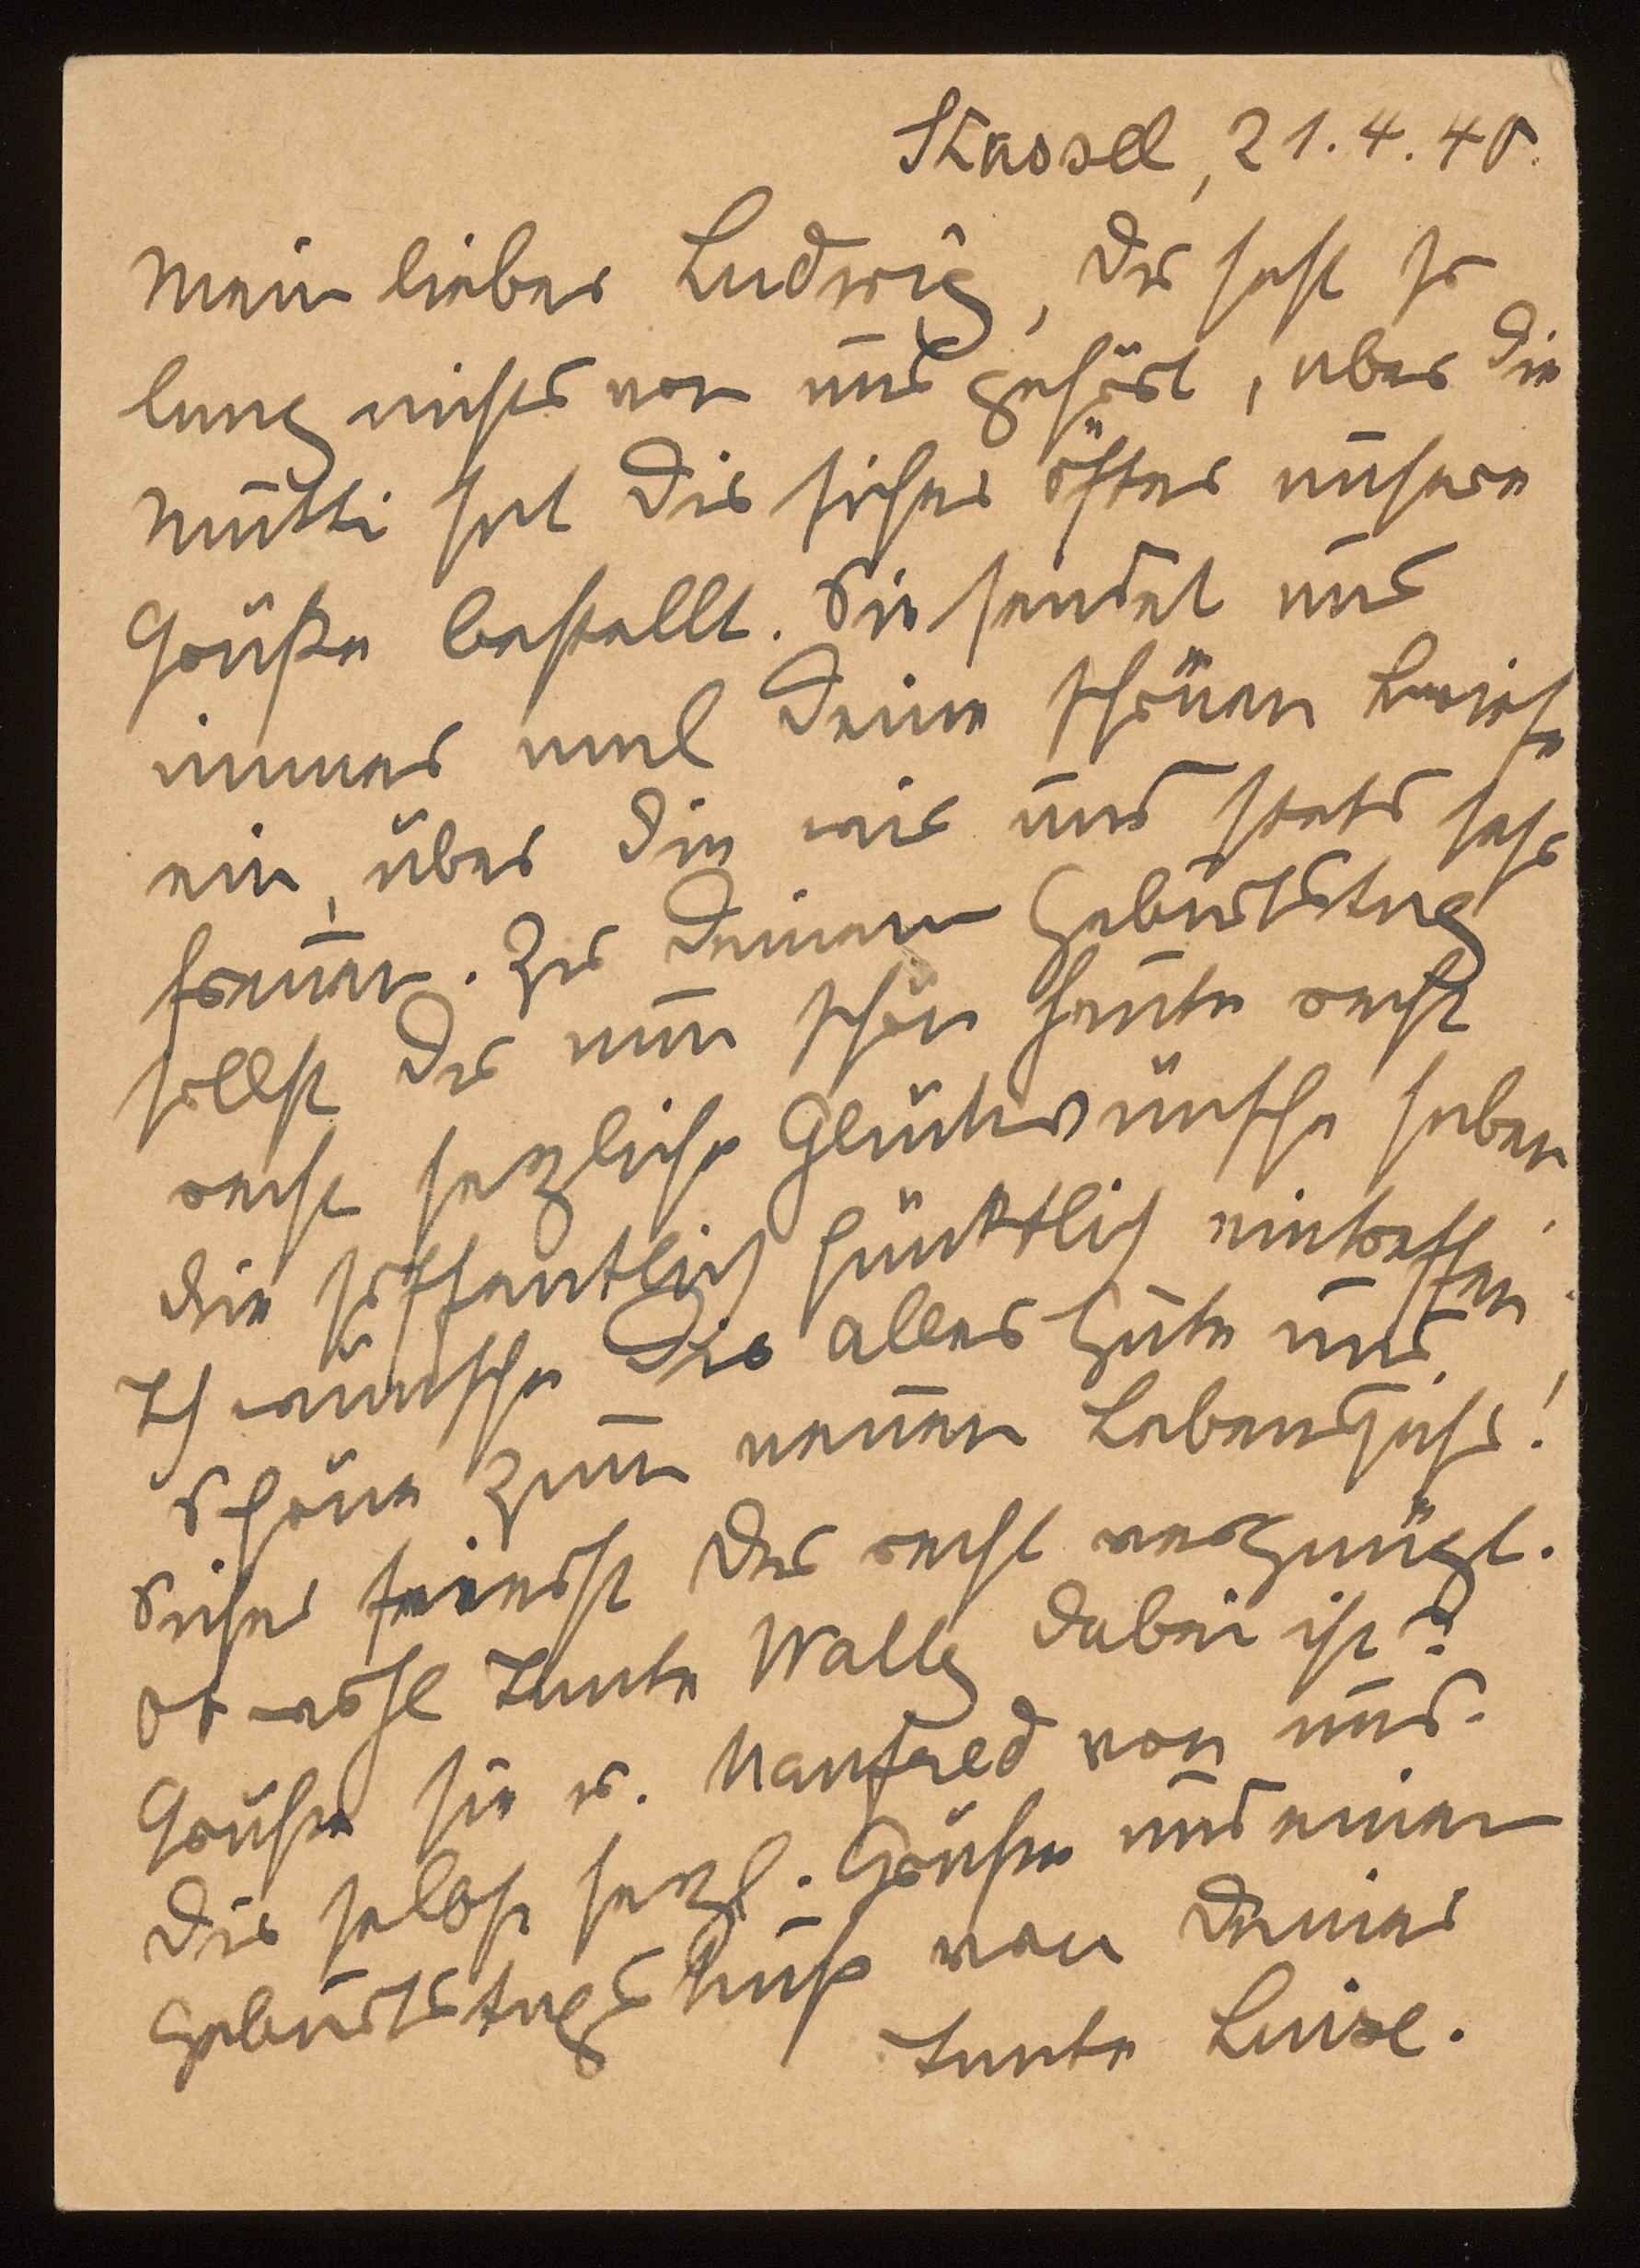 Kassel, 21.4.40.
Mein lieber Ludwig, Du hast so
lang nichts von uns gehört, aber die
Mutti hat Dir sicher öfter unsere
Grüße bestellt. Sie sendet uns
immer mal Deine schönen Briefe
ein, über die wir uns stets sehr
freuen. Zu Deinem Geburtstag
sollst Du nun schon heute recht
recht herzliche Glückwünsche haben,
die hoffentlich pünktlich eintreffen.
Ich wünsche Dir alles Gute und
Schöne zum neuen Lebensjahr!
Sicher feierst Du recht vergnügt.
Ob wohl Tante Wally dabei ist?
Grüße sie u. Manfred von uns.
Dir selbst herzl. Grüße und einen
Geburtstagskuß von Deiner
Tante Luise.